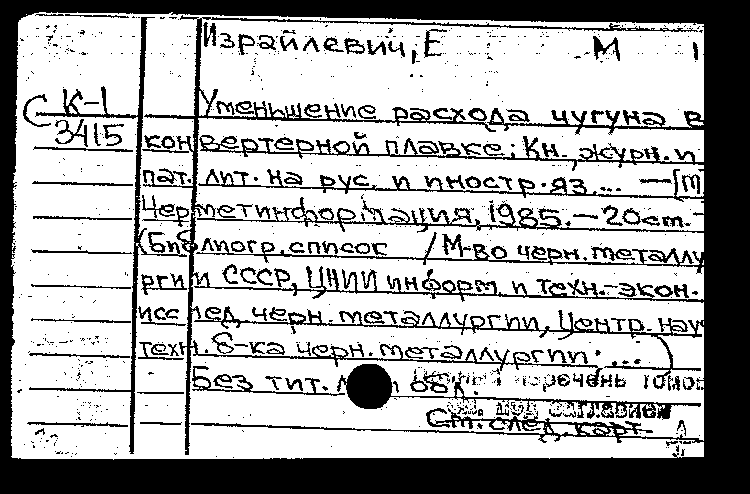 Израйлевич, Е М
С К-1 Уменьшение расхода чугуна в
3415 конвертерной плавке: Кн., журн. и
пат. лит. на рус. и иностр. яз... — [М
Черметинформация, 1985. — 20 см. —
(Библиогр. список / М-во черн. металлу
ргии СССР, ЦНИИ информ. и техн.-экон.
исслед. черн. металлургии, Центр. науч
техн. б-ка черн. металлургии; ...)
Без тит. л. перечень томов
см. под заглавием
См. след. карт.